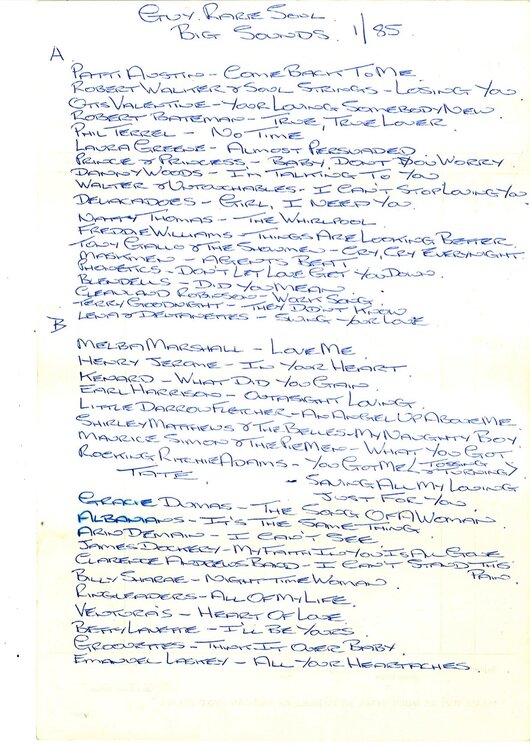 Guy. Rare Soul.
Big Sounds. 1/85
A.
Patti Austin - Come Back To Me.
Robert Walker & Soul Strings - Losing You.
Otis Valentine - Your Loving Somebody New.
Robert Bateman - True, True Lover.
Phil Terrel - No Time.
Laura Greene - Almost Persuaded
Prince & Princess - Baby, Dont You Worry.
Danny Woods - I'm Talking To You
Walter & Untouchables - I Can't Stop Loving You
Delacadoes - Girl, I Need You.
Natty Thomas - The Whirlpool.
Freddie Williams - Things Are Looking Better.
Tony Giallo & The Showme - Cry, Cry Everynight.
Maskmen - Agents Beat.
Phonetics - Don't Let Love Get You Down.
Blendells - Did You Mean.
Cleanland Robinson - Work Song.
Terry Goodnight - They Didn't Know
Lena & Deltanettes - Swing Your Love
B
Melba Marshall - Love Me.
Henry Jerome - In Your Heart
Kenard - What Did You Gain.
Earl Harrison - Outasight Loving.
Little Darrow Fletcher - An Angel Up Above Me.
Shirley Matthews & The Belles - My Naughty Boy.
Maurice Simon & The Pie Men - What You Got.
Rocking Ritchie Adams - You Got Me (Tossing & Turning)
Tate. - Saving All My Loving Just For You.
Gracie Dumas - The Song Of A Woman
Albanians - It's The Same Thing
Arin Demain - I Can't See.
James Dockery - My Faith In You Is All Gone
Clarence Andrews Band - I Can't Stand This Pain.
Billy Sharae - Night Time Woman.
Ringleaders - All Of My Life.
Ventura's - Heart Of Love
Betty Lavette - I'll Be Yours.
Groovettes - Think It Over Baby.
Emanuel Laskey - All Your Heartaches.